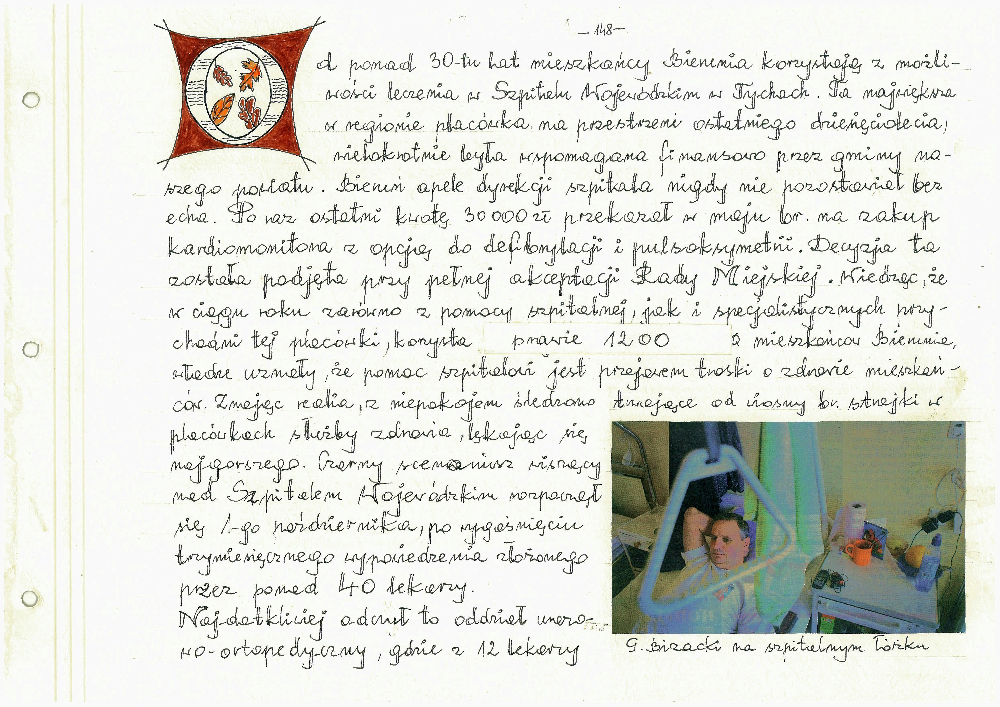 — 148 —
Od ponad 30-tu lat mieszkańcy Bierunia korzystają z możli-
wości leczenia w Szpitalu Wojewódzkim w Tychach. Ta największa
w regionie placówka na przestrzeni ostatniego dziesięciolecia,
wielokrotnie była wspomagana finansowo przez gminy na-
szego powiatu. Bieruń apele dyrekcji szpitala nigdy nie pozostawiał bez
echa. Po raz ostatni kwotę 30 000 zł przekazał w maju br. na zakup
kardiomonitora z opcją do defibrylacji i pulsoksymetrii. Decyzja ta
została podjęta przy pełnej akceptacji Rady Miejskiej. Wiedząc, że
w ciągu roku zarówno z pomocy szpitalnej, jak i specjalistycznych przy-
chodni tej placówki, korzysta prawie 1200 mieszkańców Bierunia,
władze uznały, że pomoc szpitalowi jest przejawem troski o zdrowie mieszkań-
ców. Znając realia, z niepokojem śledzono trwające od wiosny br. strajki w
placówkach służby zdrowia, lękając się
najgorszego. Czarny scenariusz wiszący
nad Szpitalem Wojewódzkim rozpoczął
się 1-go października, po wygaśnięciu
trzymiesięcznego wypowiedzenia złożonego
przez ponad 40 lekarzy.
Najdotkliwiej odczuł to oddział urazo-
wo-ortopedyczny, gdzie z 12 lekarzy
G. Bizacki na szpitalnym łóżku